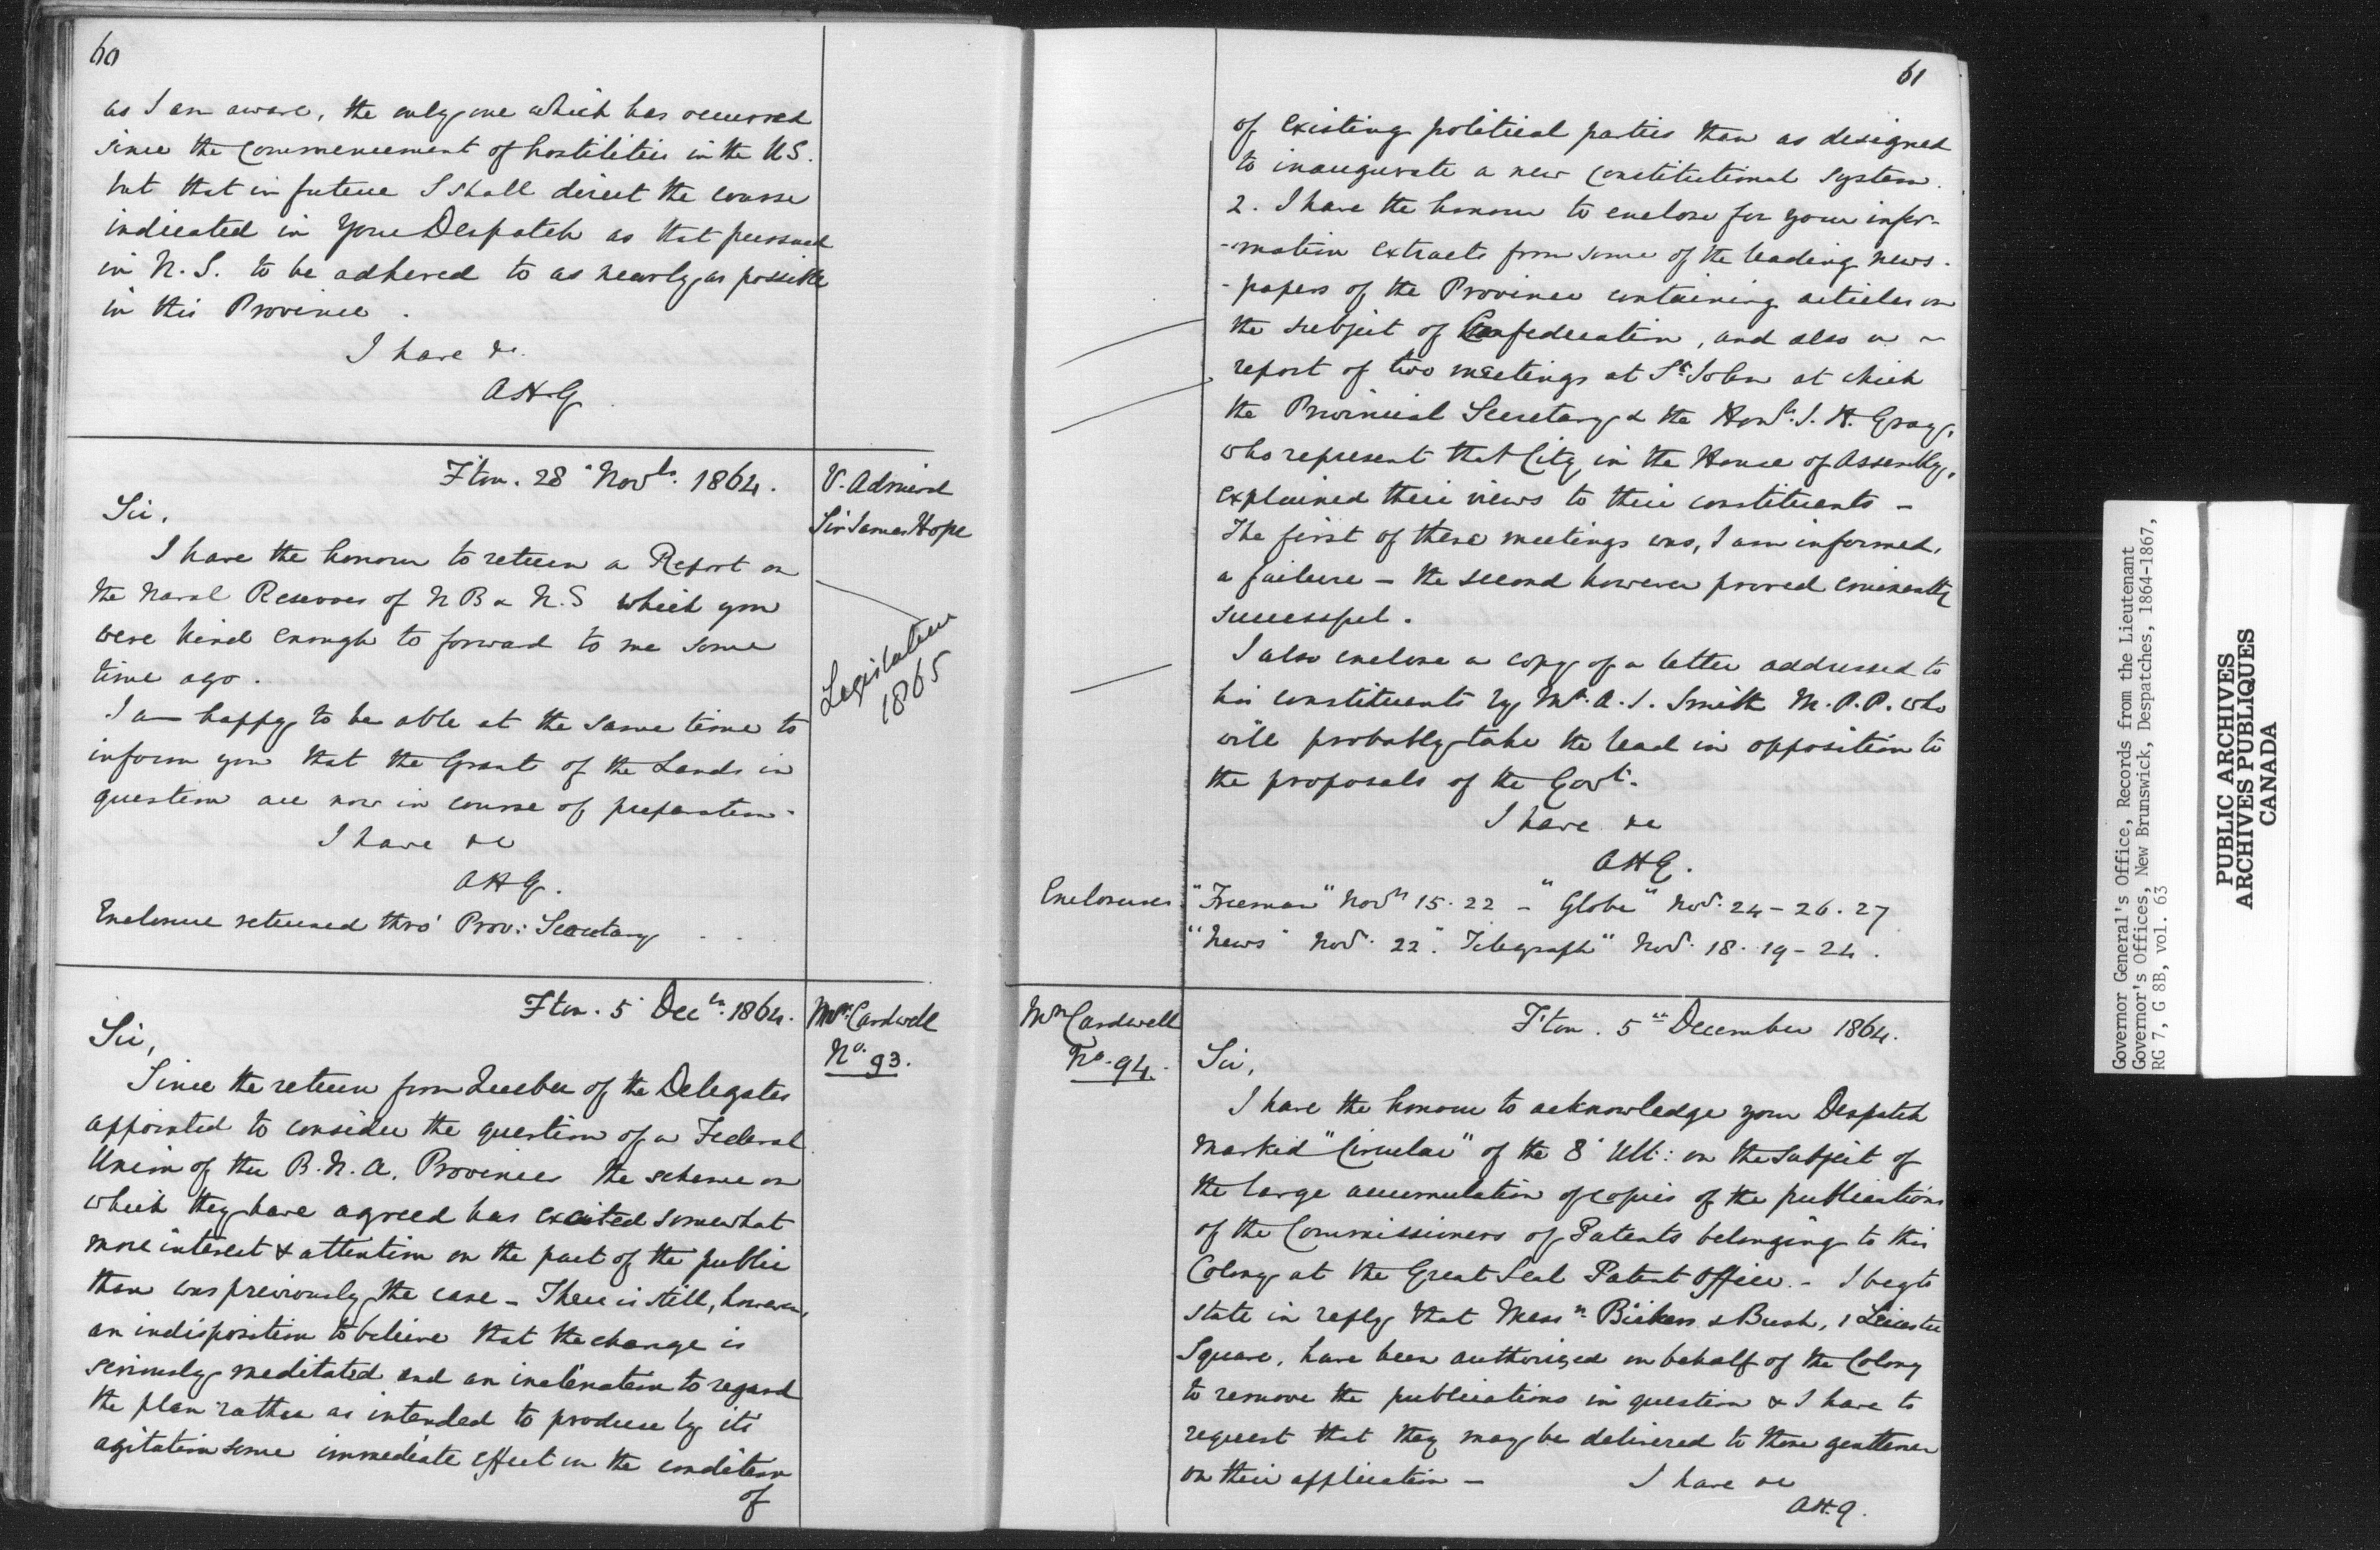 60
as I am aware, the only one which has occurred
since the commencement of hostilities in the U.S.
but that in future I shall direct the course
indicated in Your Despatch as that pursued
in N.S. to be adhered to as nearly as possible
in this Province.
I have &c.
AHG
F'ton. 28 Novbr. 1864.
V. Admiral
Sir James Hope
Sir,
I have the honour to return a Report on
the Naval Reserves of N B & N.S which you
were kind enough to forward to me some
time ago.
I am happy to be able at the same time to
inform you that the Grants of the Lands in
question are now in course of preparation.
I have &c
AHG.
Enclosure returned thro' Prov: Secretary
Legislature
1865
F'ton. 5 Decr. 1864.
Mr. Cardwell
No. 93.
Sir,
Since the return from Quebec of the Delegates
appointed to consider the question of a Federal
Union of the B.N.A. Provinces the scheme on
which they have agreed has excited somewhat
more interest & attention on the part of the public
than was previously the case – There is still, however,
an indisposition to believe that the change is
seriously meditated and an inclination to regard
the plan rather as intended to produce by its
agitation some immediate effect on the condition
of
61
of existing political parties than as designed
to inaugurate a new constitutional system.
2. I have the honour to enclose for your infor-
-mation extracts from some of the leading news-
-papers of the Province containing articles on
the subject of Confederation, and also a
report of two meetings at St. John at which
the Provincial Secretary & the Honble. J. H. Gray,
who represent that City in the House of Assembly,
explained their views to their constituents –
The first of these meetings was, I am informed,
a failure – the second however proved eminently
successful.
I also enclose a copy of a letter addressed to
his constituents by Mr. A. J. Smith M.P.P. who
will probably take the lead in opposition to
the proposals of the Govt.
I have &c
AHG.
Enclosures "Freeman" Novr 15. 22 – "Globe" Nov. 24 – 26. 27
"News" Nov. 22". Telegraph" Nov. 18. 19 – 24.
Mr Cardwell
No. 94.
F'ton. 5th December 1864.
Sir,
I have the honour to acknowledge your Despatch
marked "Circular" of the 8 Ult: on the subject of
the large accumulation of copies of the publications
of the Commissioners of Patents belonging to this
Colony at the Great Seal Patent Office. – I beg to
state in reply that Messrs Bickers & Bush, 1 Leicester
Square, have been authorized on behalf of the Colony
to remove the publications in question & I have to
request that they may be delivered to those gentlemen
on their application –
I have &c
AH.G.
Governor General's Office, Records from the Lieutenant
Governor's Offices, New Brunswick, Despatches, 1864-1867,
RG 7, G 8B, vol. 63
PUBLIC ARCHIVES
ARCHIVES PUBLIQUES
CANADA